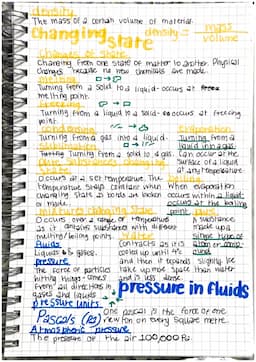 density
The mass of a certain volume of material.
changing state
density = mass / volume
changes of state
Changing from one state of matter to another. Physical
changes because no new chemicals are made.
melting
Turning from a solid to a liquid - occurs at
melting point.
freezing
Turning from a liquid to a solid - occurs at freezing
point
condensing
Turning from a gas into a liquid.
sublimation
Turning from a solid to a gas.
evaporation
Turning from a
liquid into a gas.
Can occur at the
surface of a liquid
at any temperature.
Occurs at a set temperature. The
temperature stays constant when
changing state as bonds are broken
or made.
boiling
When evaporation
occurs within a liquid
occurs at the boiling
point
mixtures changing state
Occurs over a range of temperature
as it contains substances with different
melting/boiling points.
pure
A substance
made up of a
single type of
atom or
fluids
Liquids & gases.
pressure
The force of particles
hitting things - comes
from all directions in
gases and liquids
water
Contracts as it's
cooled up until 4°c
and then it expands slightly. Ice
takes up more space than water
and is less dense
pressure in fluids
pressure units
Pascals (Pa)
One pascal is the force of one
newton on every square metre.
Atmospheric pressure
The pressure of the air 100,000 Pa